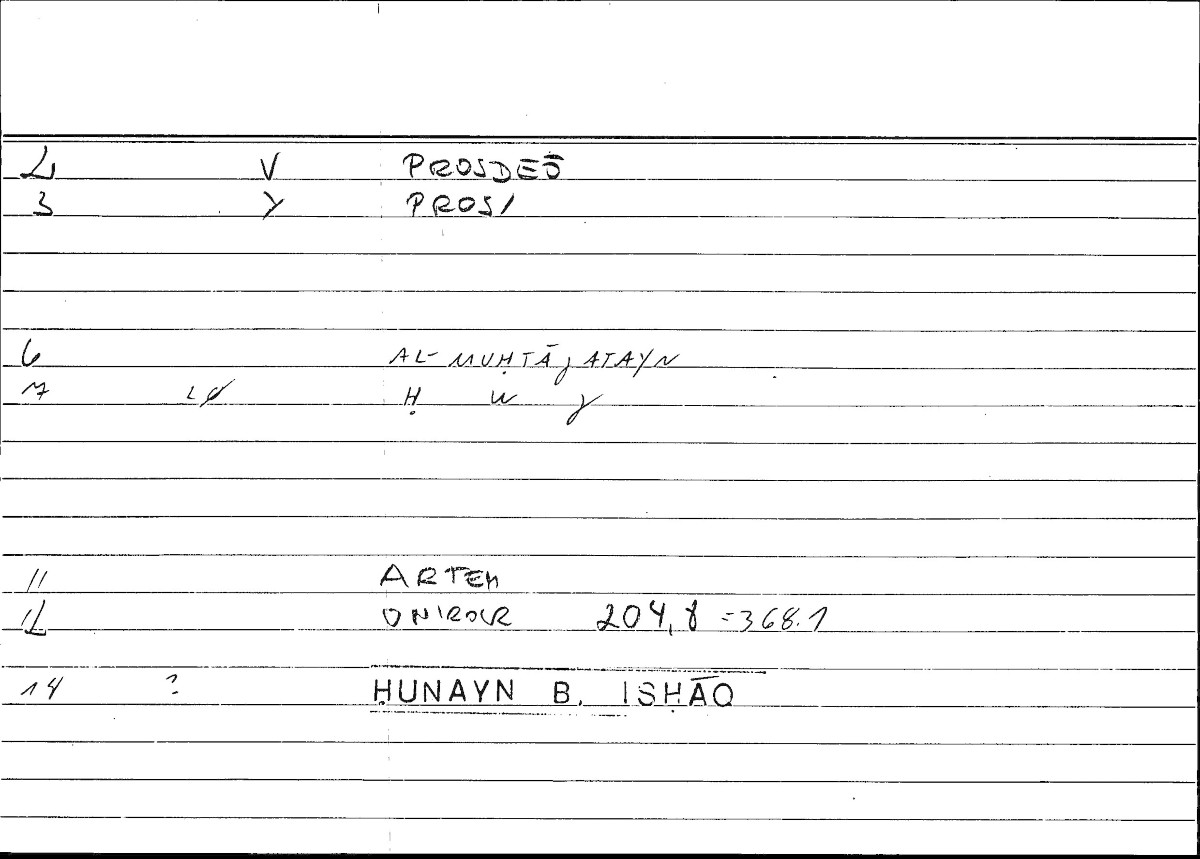 2 V PROSDEŌ
3 Y PROS/
6 AL-MUḤTĀJATAYN
7 LØ Ḥ W J
11 ARTEM
12 ONIROCR 204,8 =368.1
14 ? ḤUNAYN B. ISḤĀQ